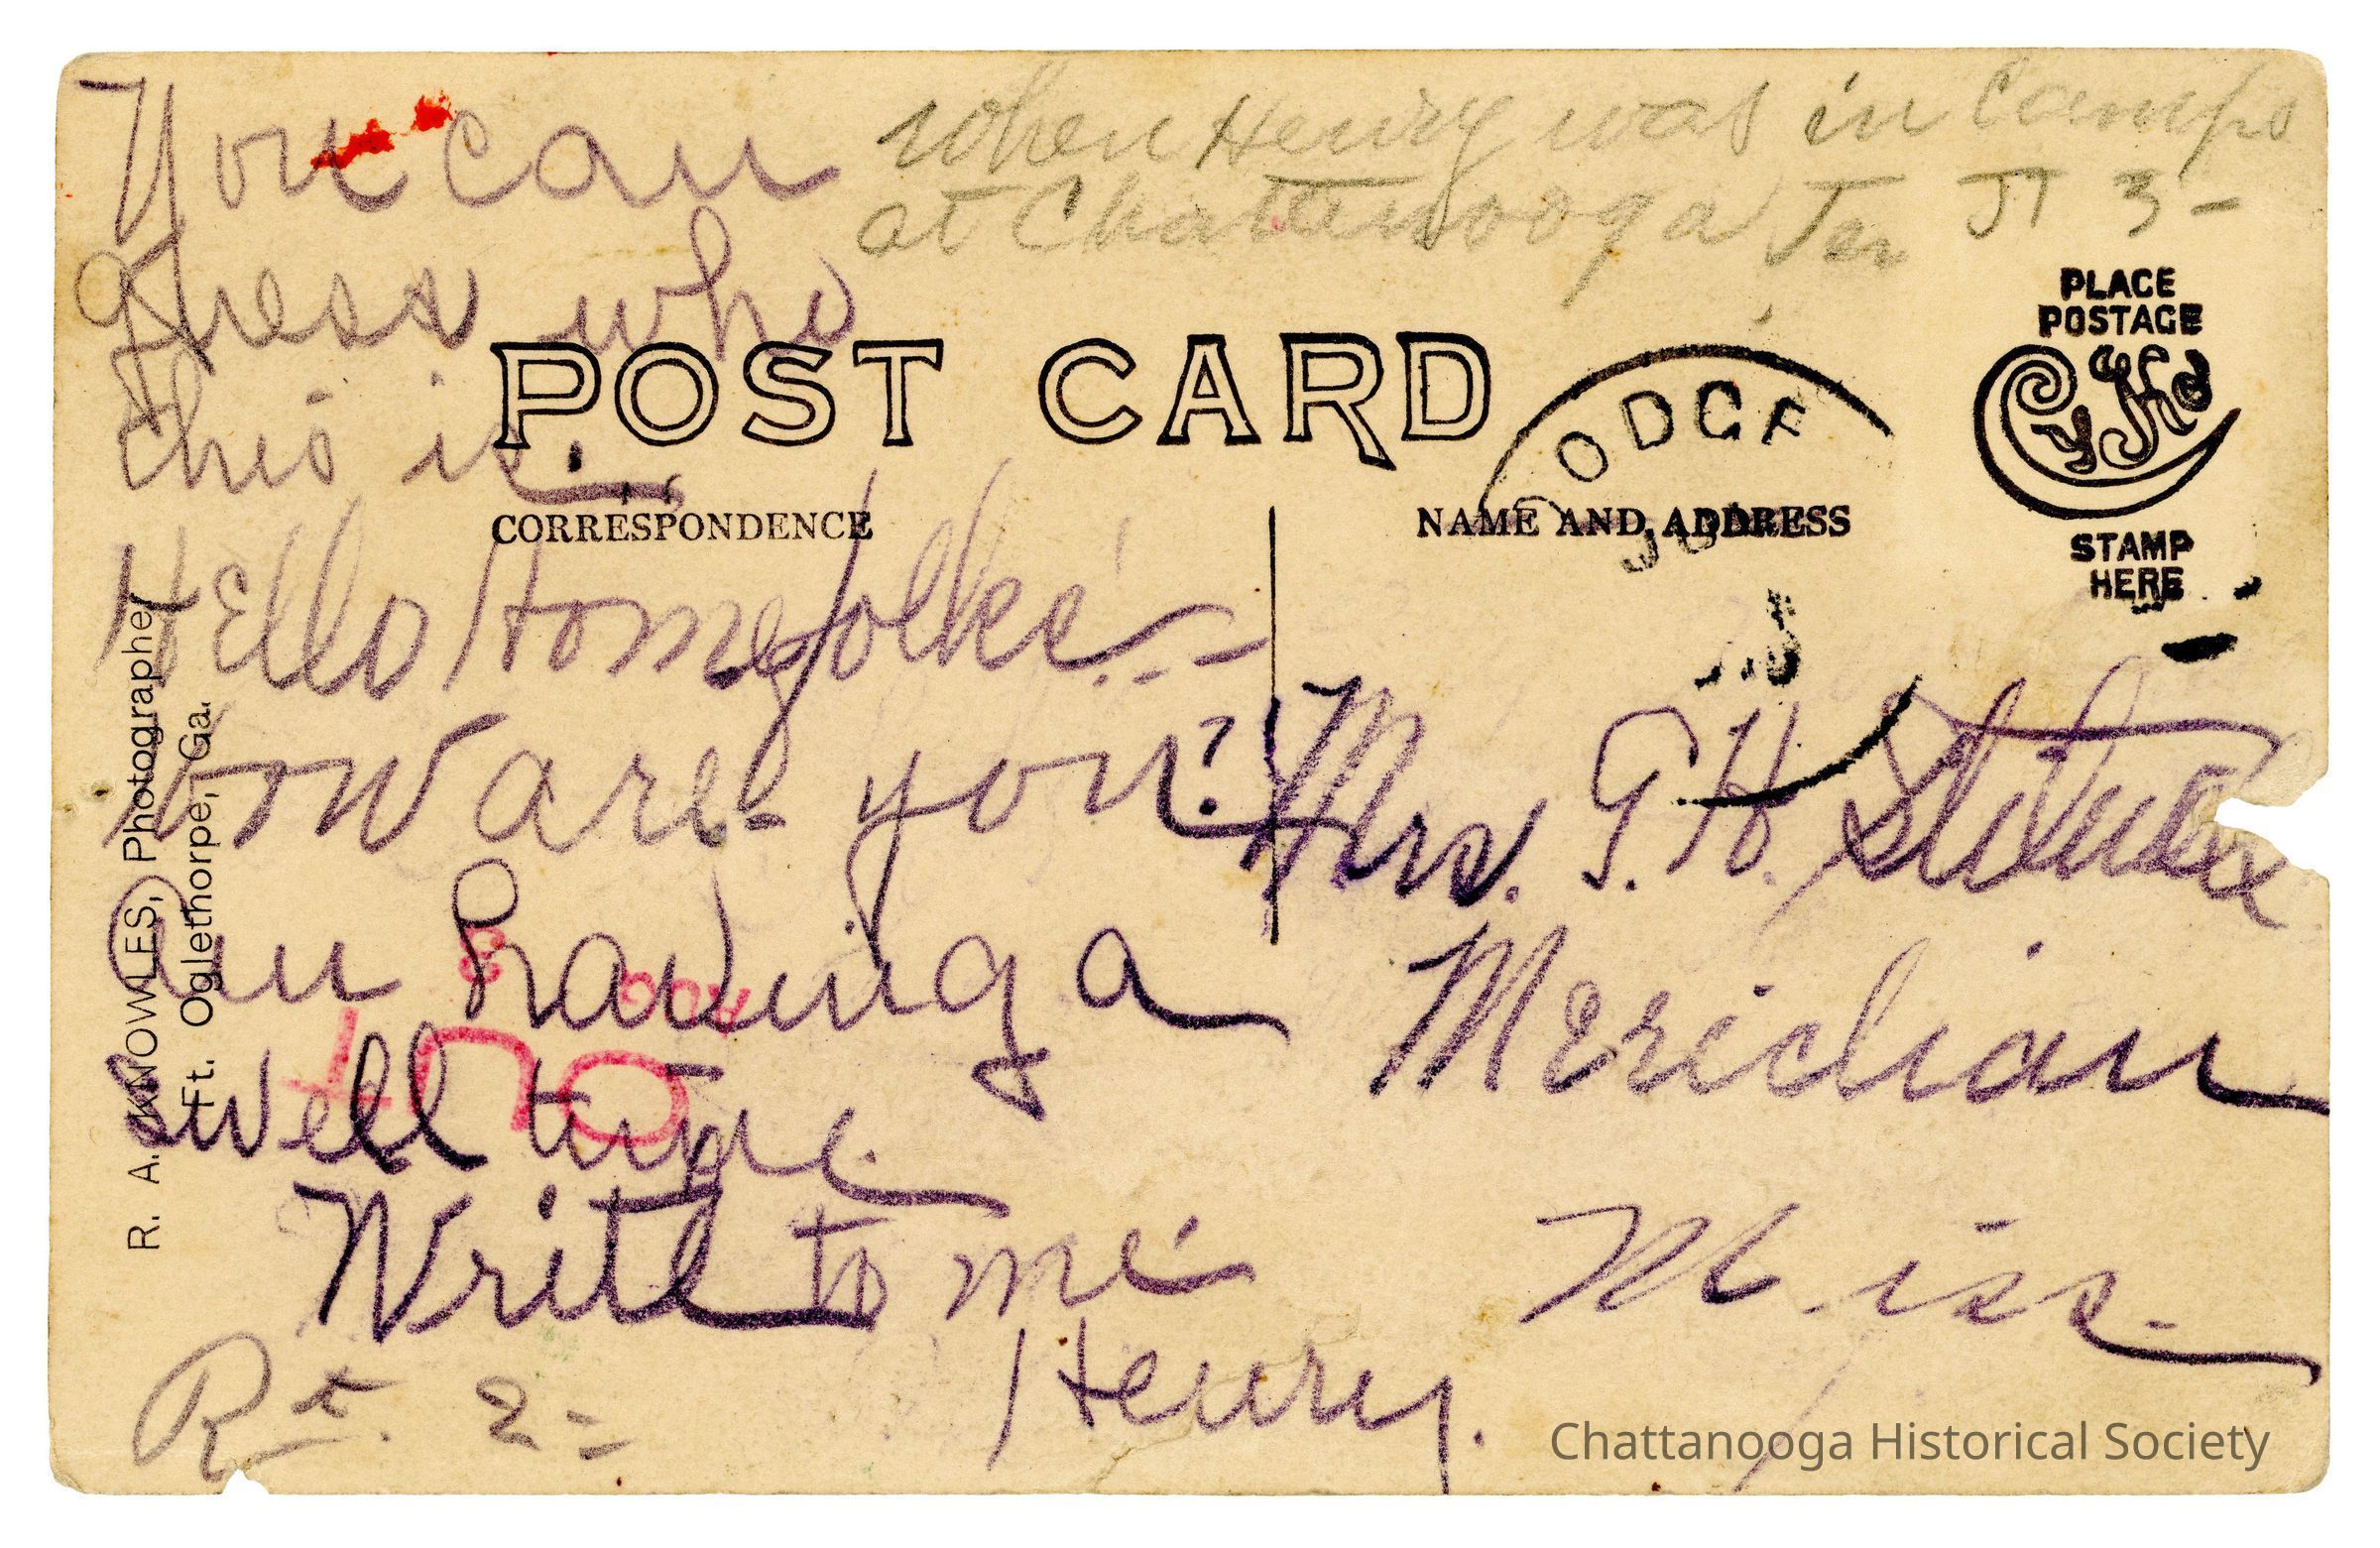 You can
guess who
this is.
when Henry was in Camp
at Chattanooga Ten JT 3-
POST CARD
CORRESPONDENCE
NAME AND ADDRESS
PLACE
POSTAGE
STAMP
HERE
ODGE
Hello Homefolks:-
How are you?
Am having a
swell time.
Write to me
Henry.
Rt. 2-
Mrs. G. H.
Meridian
Miss.
R. A. KNOWLES, Photographer
Ft. Oglethorpe, Ga.
OUT
Chattanooga Historical Society